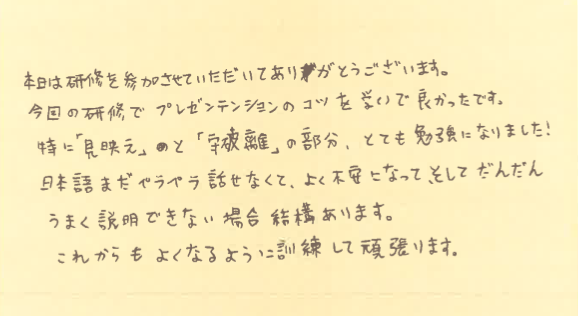 本日は研修を参加させていただいてありがとうございます。
今回の研修で プレゼンテンションのコツを学いで良かったです。
特に「見映え」のと「守破離」の部分、とても勉強になりました!
日本語まだペラペラ話せなくて、よく不安になって、そしてだんだん
うまく説明できない場合結構あります。
これからもよくなるように訓練して頑張ります。